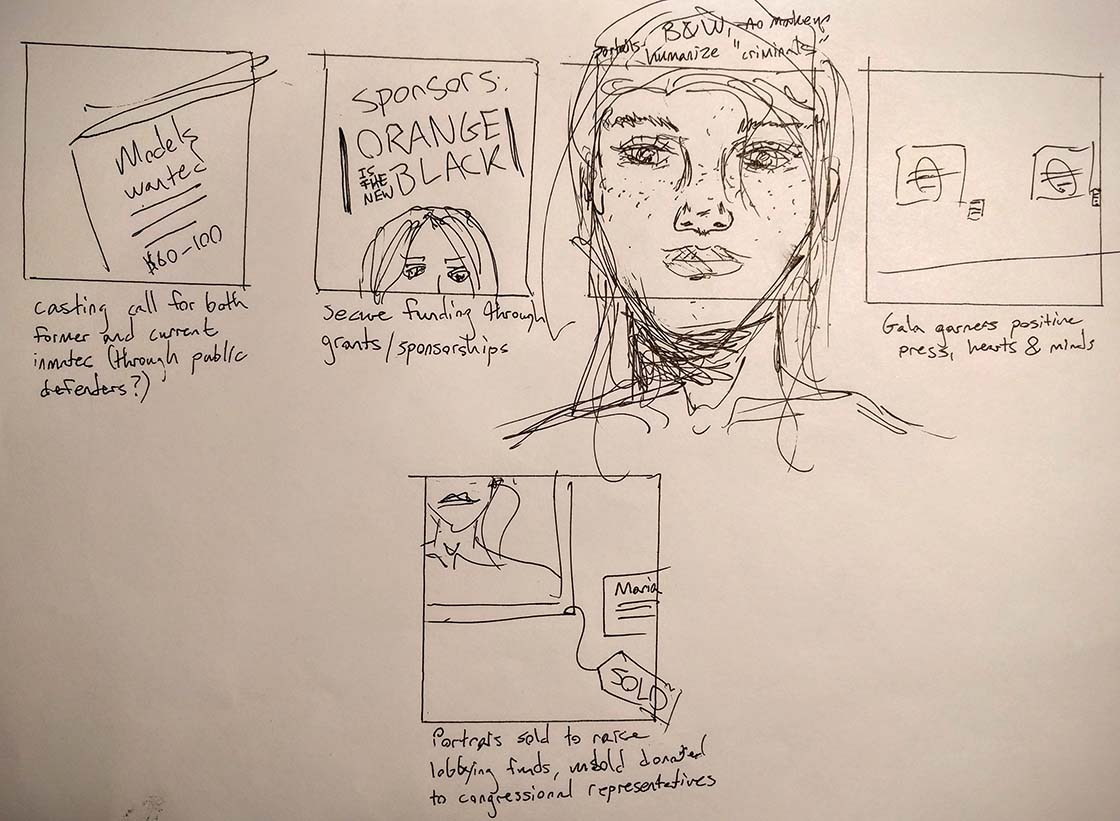 Models
wanted
$60-100
casting call for both
former and current
inmates (through public
defenders?)
Sponsors:
ORANGE
IS
THE
NEW
BLACK
secure funding through
grants/sponsorships
B&W, no makeup
portraits
humanize "criminals"
Gala garners positive
press, hearts & minds
Maria
SOLD
Portraits sold to raise
lobbying funds, unsold donated
to congressional representatives